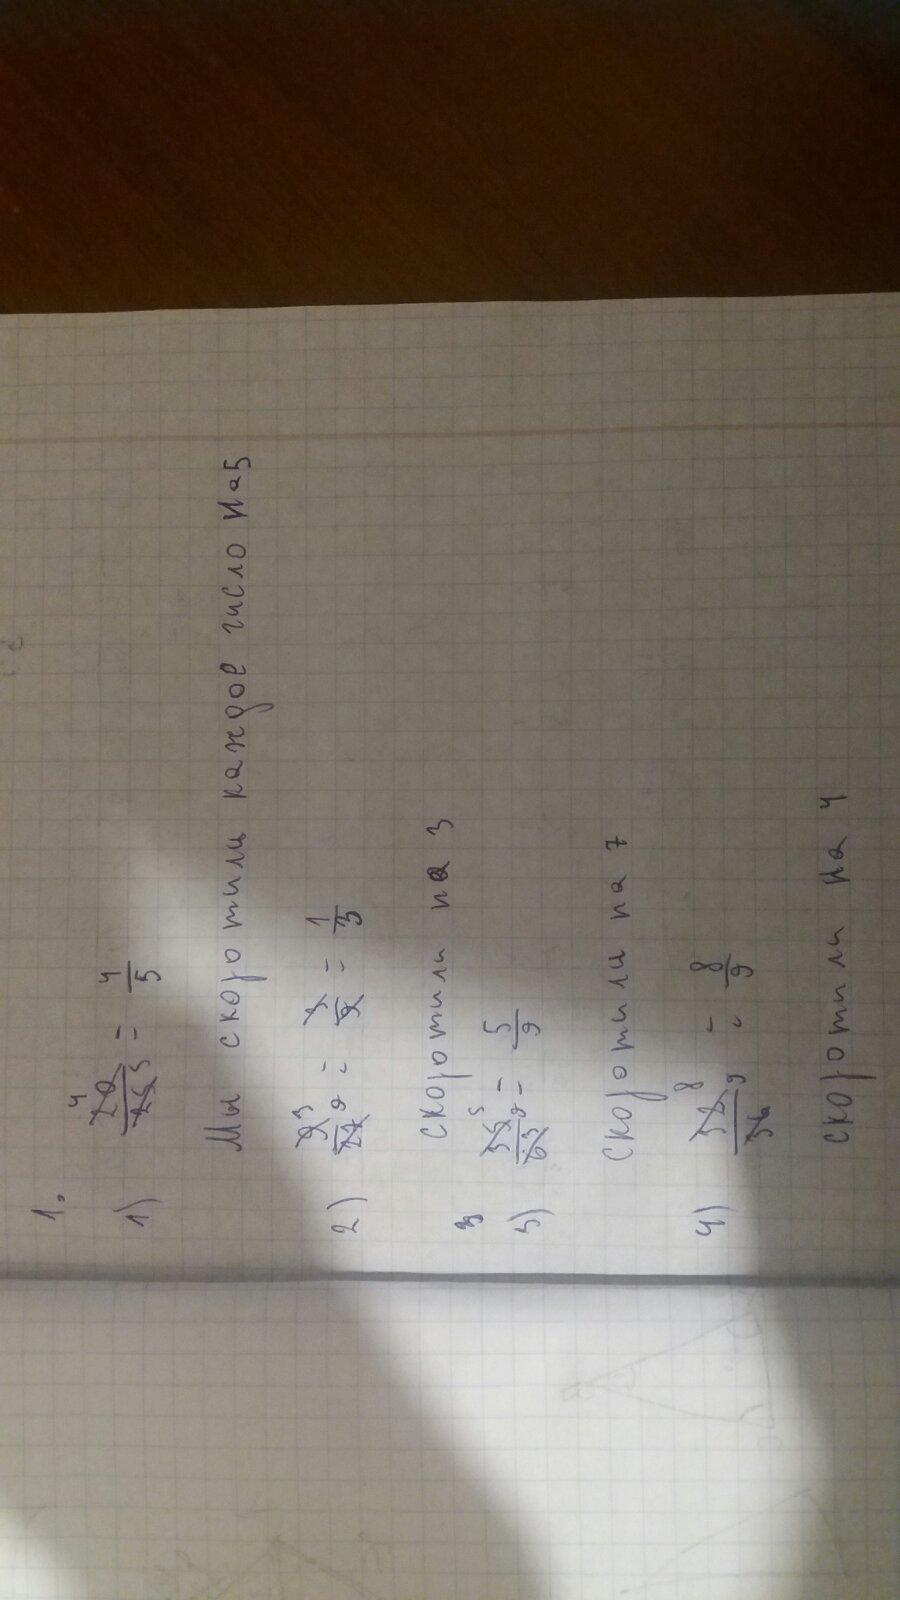 1.
1) 20/25 = 4/5
Мы скоротили каждое число на 5
2) 9/27 = 3/9 = 1/3
скоротили на 3
3) 35/63 = 5/9
скоротили на 7
4) 32/36 = 8/9
скоротили на 4